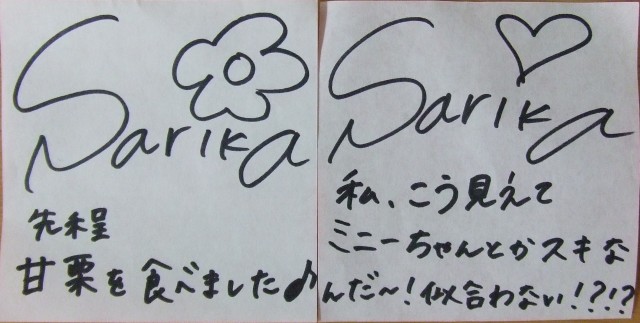 Sarika
先程
甘栗を食べました♪
Sarika
私、こう見えて
ミニーちゃんとかスキな
んだ〜!似合わない!?!?